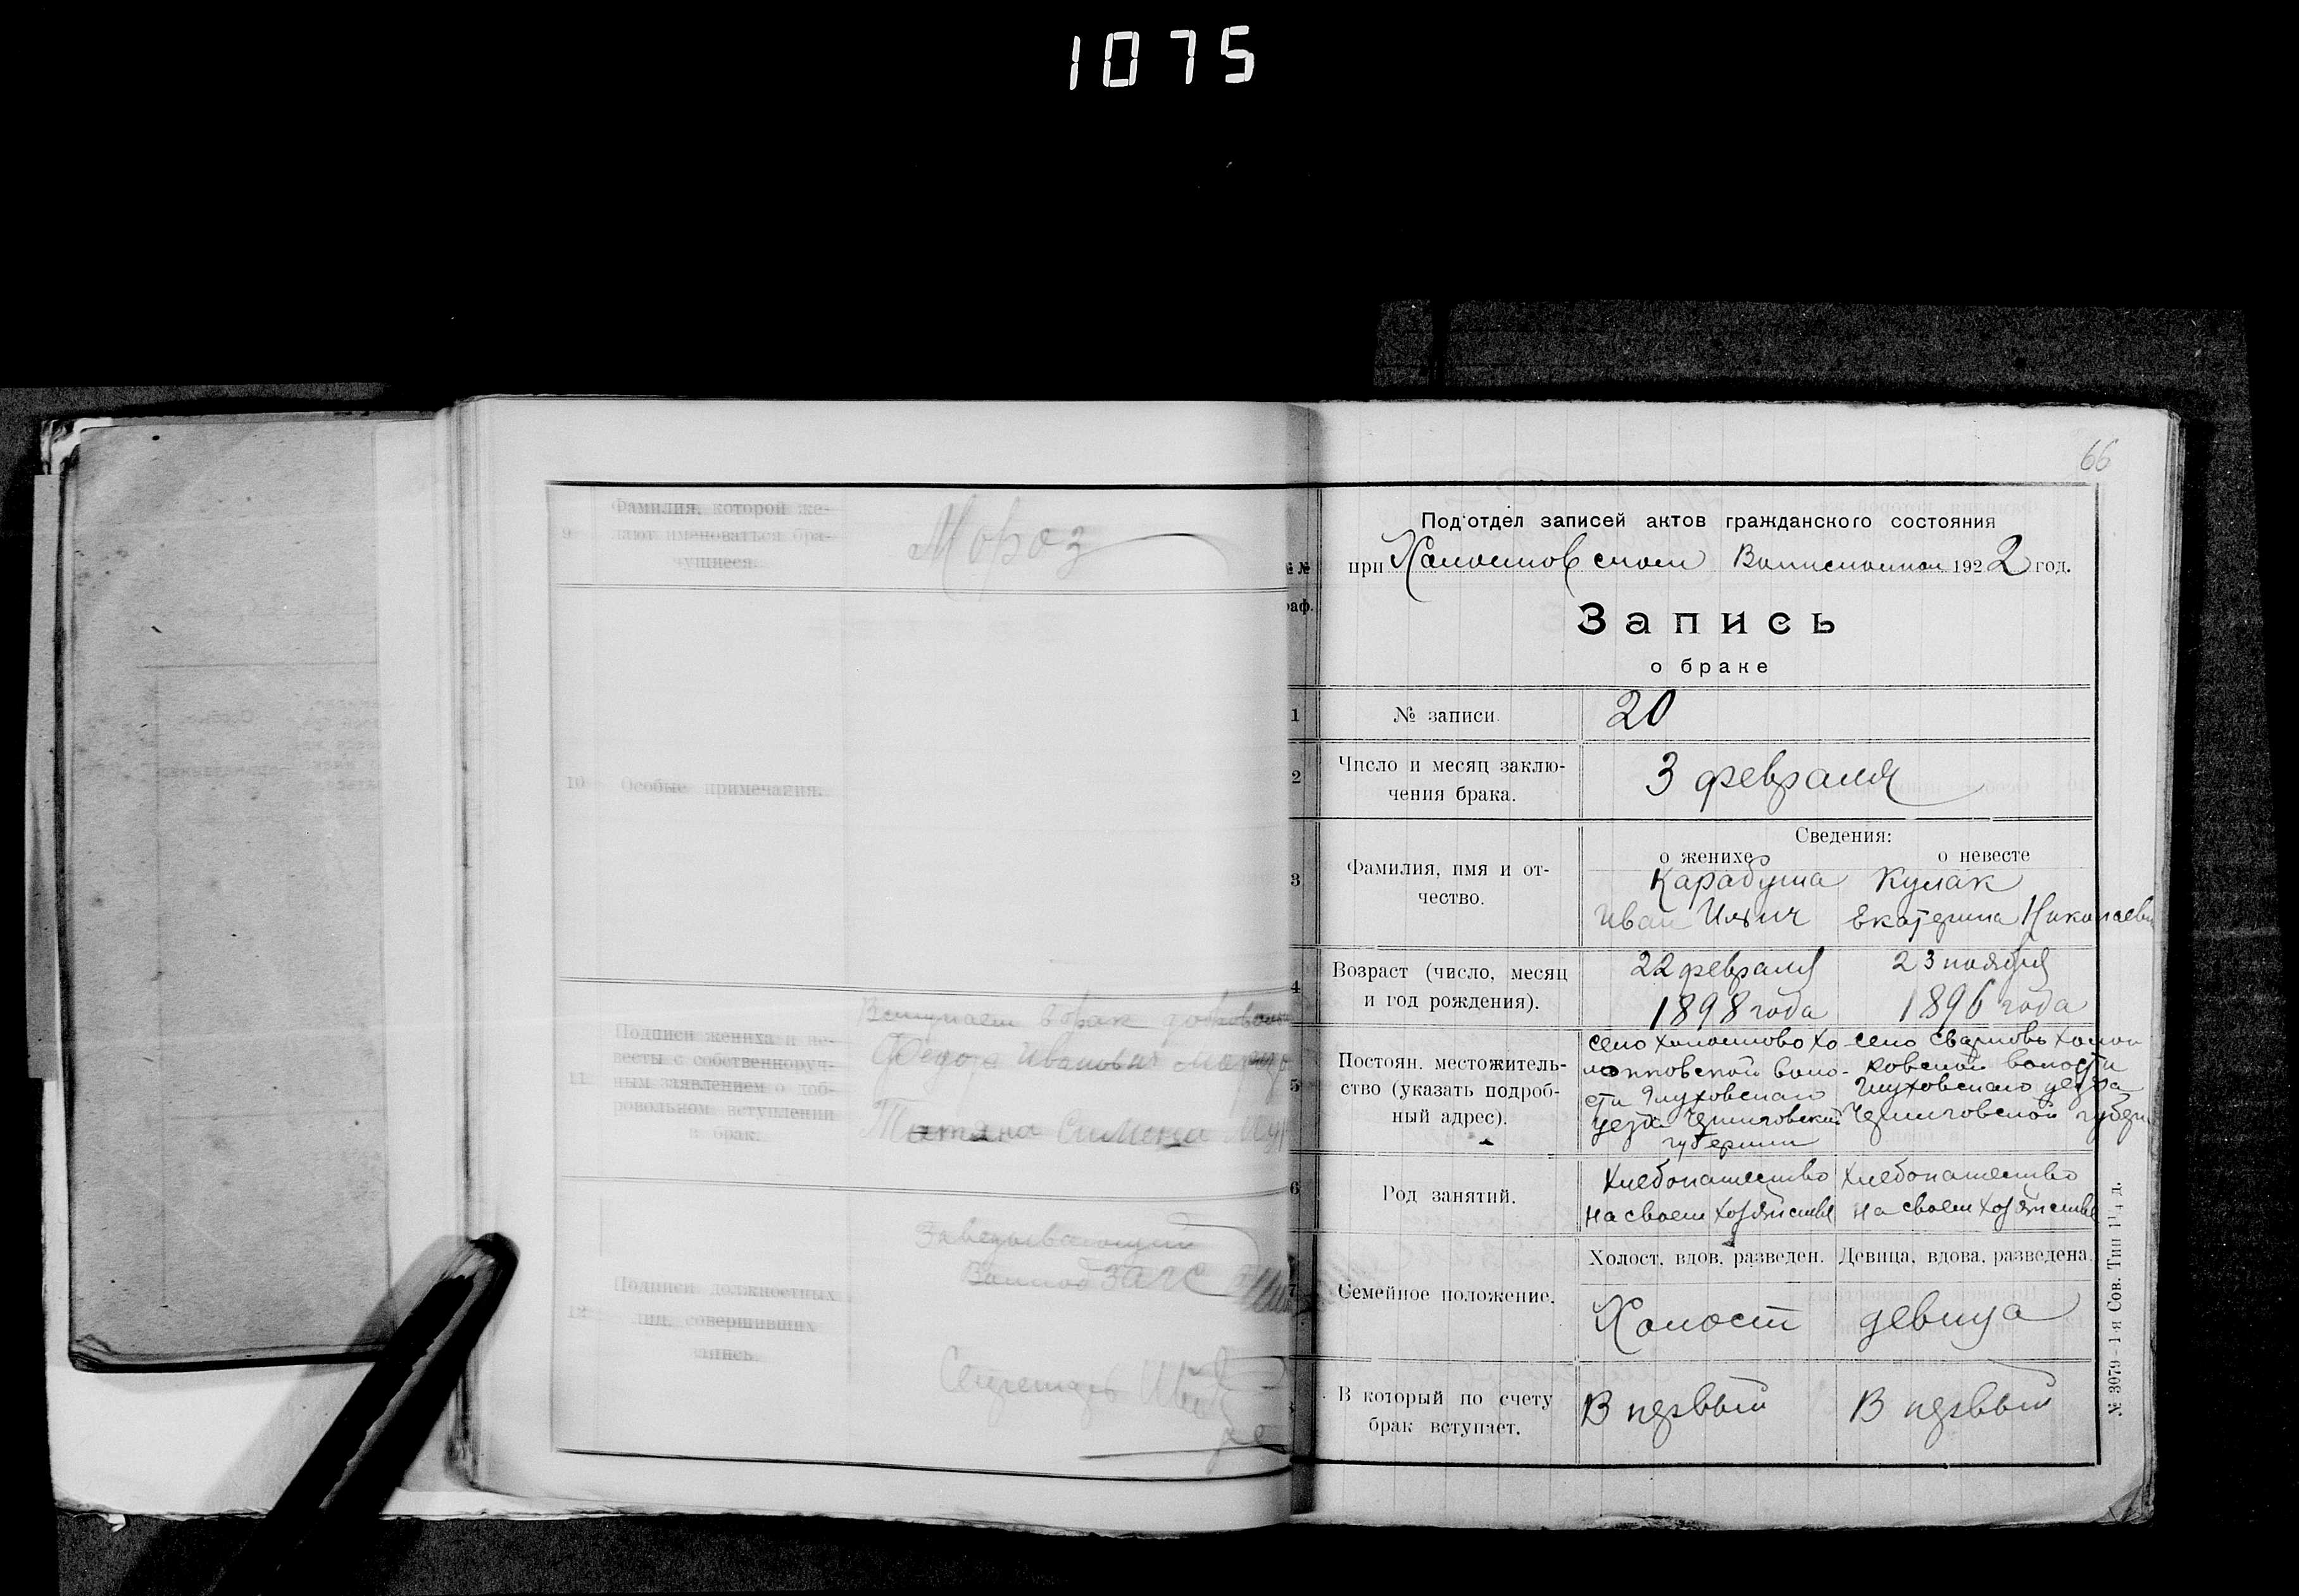 1075
9
Фамилия, которой же-
лают именоваться бра-
чущиеся.
Мороз
10
Особые примечания.
11
Подписи жениха и не-
весты с собственноруч-
ным заявлением о доб-
ровольном вступлении
в брак.
Вступаем в брак
Федора Иванович
Татяна
12
Подписи должностных
лиц, совершивших
запись.
Заведывающий
ЗАГС
Секретарь
66
№№
раф.
Под'отдел записей актов гражданского состояния
при Холоптовском Волисполком 1922 год.
Запись
о браке
1
№ записи.
20
2
Число и месяц заклю-
чения брака.
3 февраля
3
Фамилия, имя и от-
чество.
Сведения:
о женихе
о невесте
Карабуша
Иван Ильич
Кулак
Екатерина Николаевн
4
Возраст (число, месяц
и год рождения).
22 февраля
1898 года
23 ноября
1896 года
5
Постоян. местожитель-
ство (указать подроб-
ный адрес).
село Хо
ской воло-
сти Глуховскаго
уезда Черниговской
губернии
село Сварковь
ковской волости
Глуховскаго уезда
Черниговской губерн
6
Род занятий.
Хлебопашество
на своем хозяйстве
Хлебопашество
на своем хозяйстве
7
Семейное положение.
Холост, вдов, разведен.
Девица, вдова, разведена.
Холост
девица
В который по счету
брак вступает.
В первый
В первый
№ 3079–1-я Сов. Тип